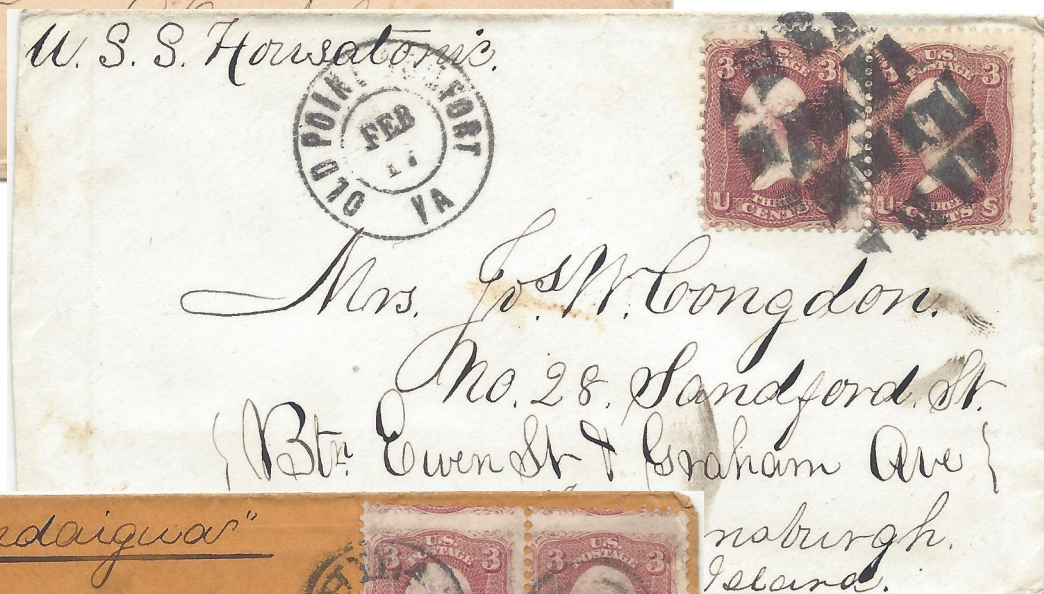 U. S. S. Housatonic.
OLD POINT COMFORT
VA
FEB
17
3 U.S. POSTAGE 3
U THREE CENTS S
3 U.S. POSTAGE 3
U THREE CENTS S
Mrs. Jos. W. Congdon.
No. 28. Sandford. St.
{ Btn. Ewen St & Graham Ave }
nsburgh.
Island.
edaigua"
3 U.S. POSTAGE 3
3 U.S. POSTAGE 3